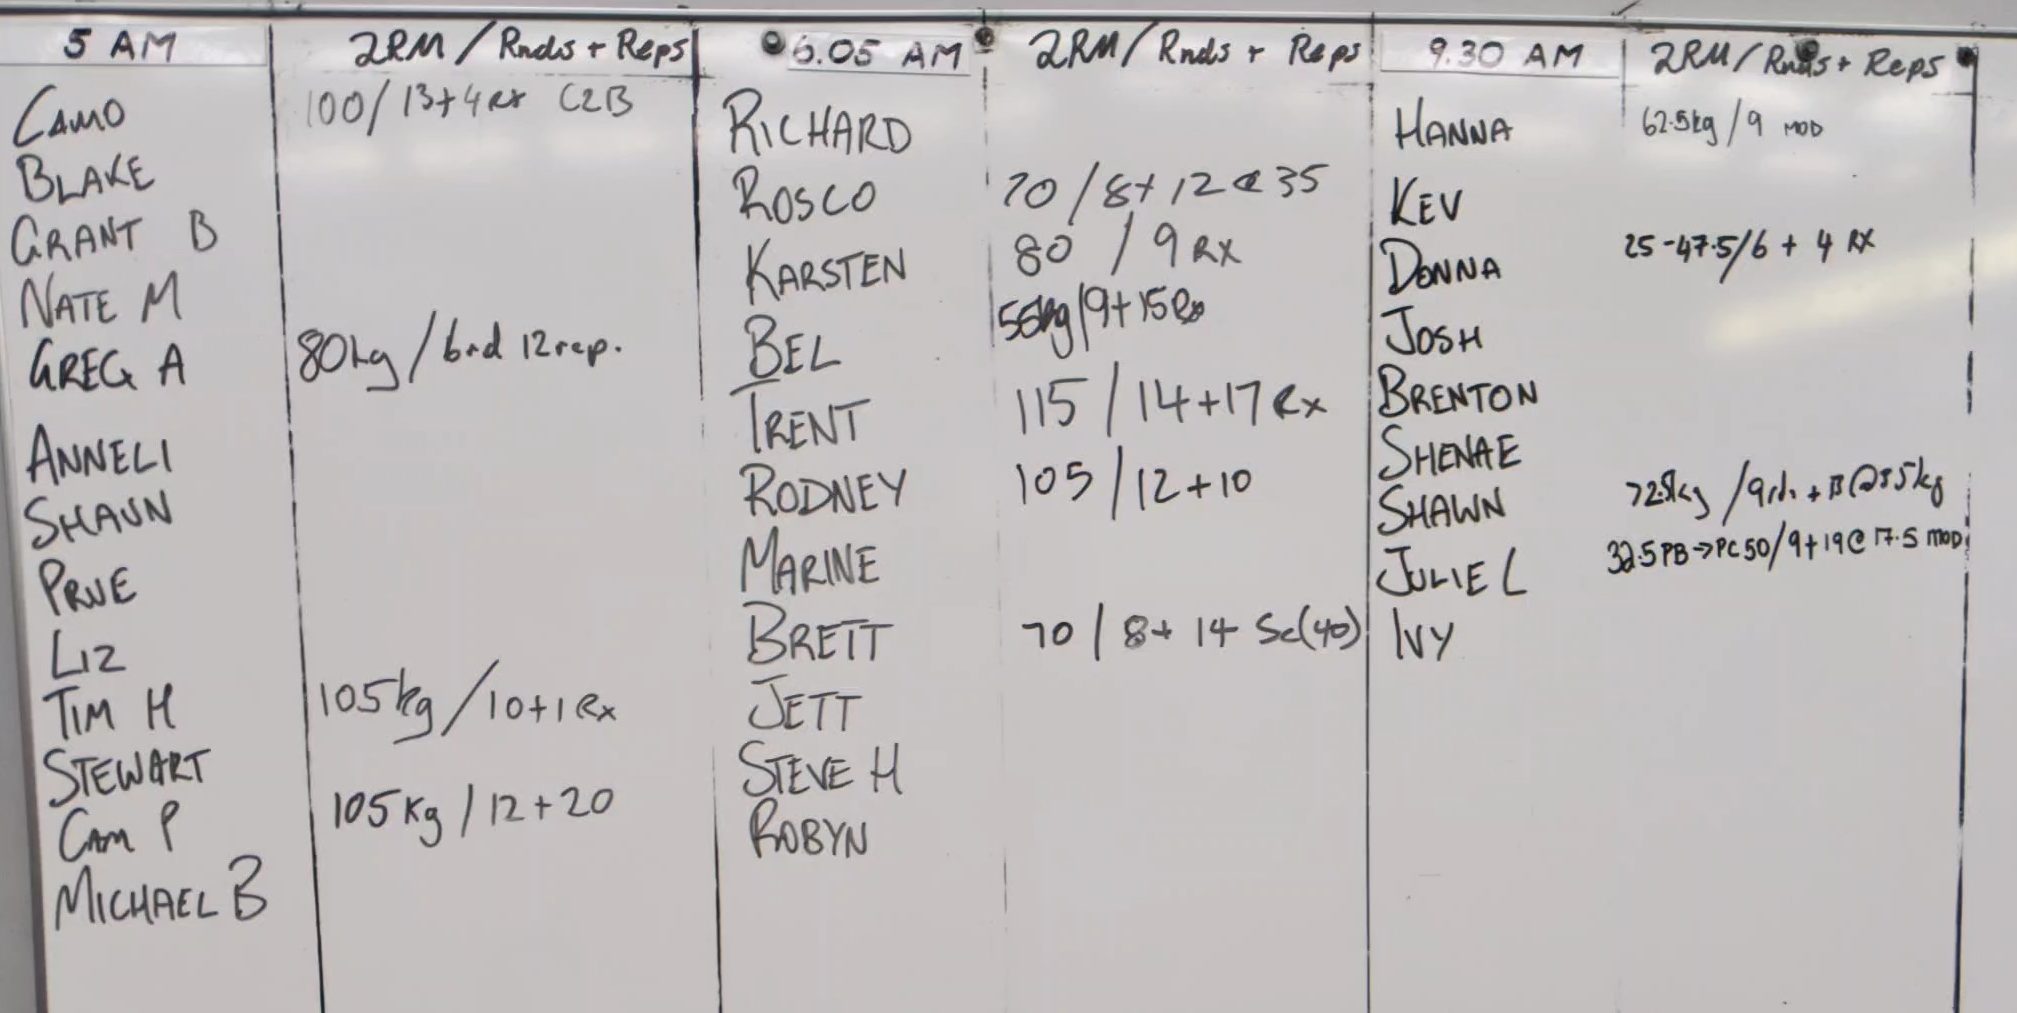 5 AM 2RM / Rnds + Reps
CAMO 100/13+4 Rx C2B
BLAKE
GRANT B
NATE M
GREG A 80kg / 6rd 12rep.
ANNELI
SHAUN
PRUE
LIZ
TIM H 105kg / 10+1 Rx
STEWART
CAM P 105Kg / 12+20
MICHAEL B
6.05 AM 2RM / Rnds + Reps
RICHARD
ROSCO 70 / 8+12 @ 35
KARSTEN 80 / 9 RX
BEL 55kg/9+15 Rx
TRENT 115 / 14+17 Rx
RODNEY 105 / 12+10
MARINE
BRETT 70 / 8+ 14 Sc(40)
JETT
STEVE H
ROBYN
9.30 AM 2RM / Rnds + Reps
HANNA 62.5kg / 9 MOD
KEV
DONNA 25-47.5/6 + 4 RX
JOSH
BRENTON
SHENAE
SHAWN /9rds +
JULIE L 32.5 PB→PC 50/9+19@ 17.5 MOD
IVY